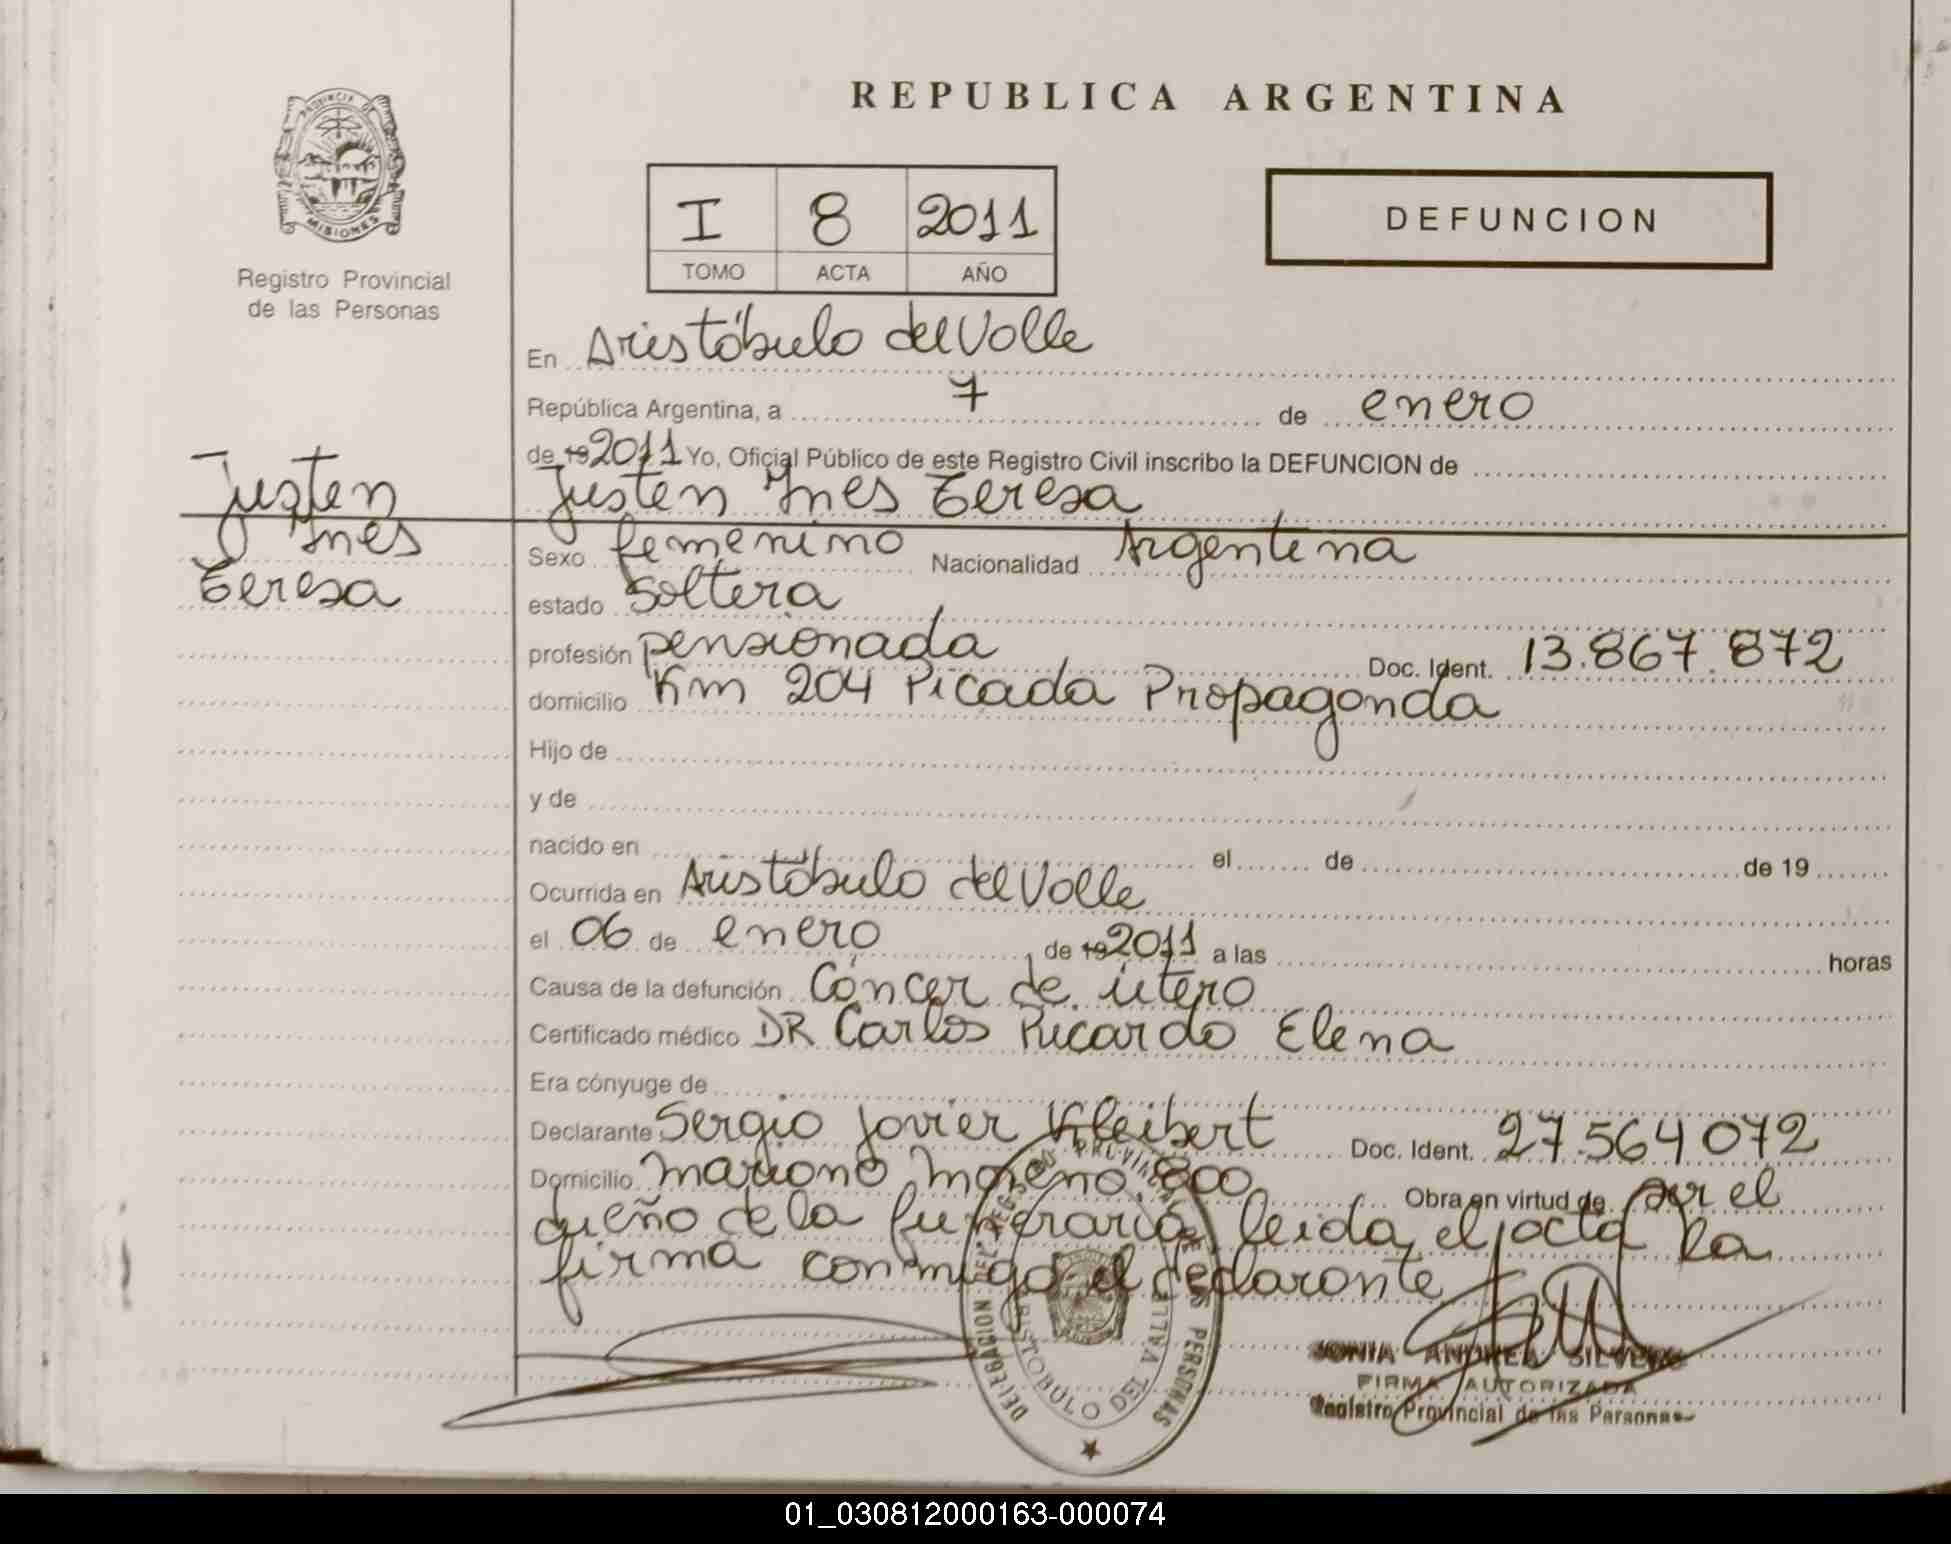 REPUBLICA ARGENTINA
PROVINCIA DE
MISIONES
Registro Provincial
de las Personas
I 8 2011
TOMO ACTA AÑO
DEFUNCION
En Aristóbulo del Valle
República Argentina, a 7 de enero
de 19 2011 Yo, Oficial Público de este Registro Civil inscribo la DEFUNCION de
Justen Ines Teresa
Justen
Ines
Teresa
Sexo femenino Nacionalidad Argentina
estado Soltera
profesión pensionada Doc. Ident. 13.867.872
domicilio Km 204 Picada Propaganda
Hijo de
y de
nacido en el de de 19
Ocurrida en Aristóbulo del Valle
el 06 de enero de 19 2011 a las horas
Causa de la defunción Cáncer de útero
Certificado médico DR Carlos Ricardo Elena
Era cónyuge de
Declarante Sergio Javier Kleibert Doc. Ident. 27.564072
Domicilio Mariano Moreno 800 Obra en virtud de ser el
dueño de la funeraria, leida el acta la
firma conmigo el declarante
DELEGACION DEL REGISTRO PROVINCIAL DE LAS PERSONAS
ARISTOBULO DEL VALLE
SONIA ANDREA SILVEIRA
FIRMA AUTORIZADA
Registro Provincial de las Personas
01_030812000163-000074